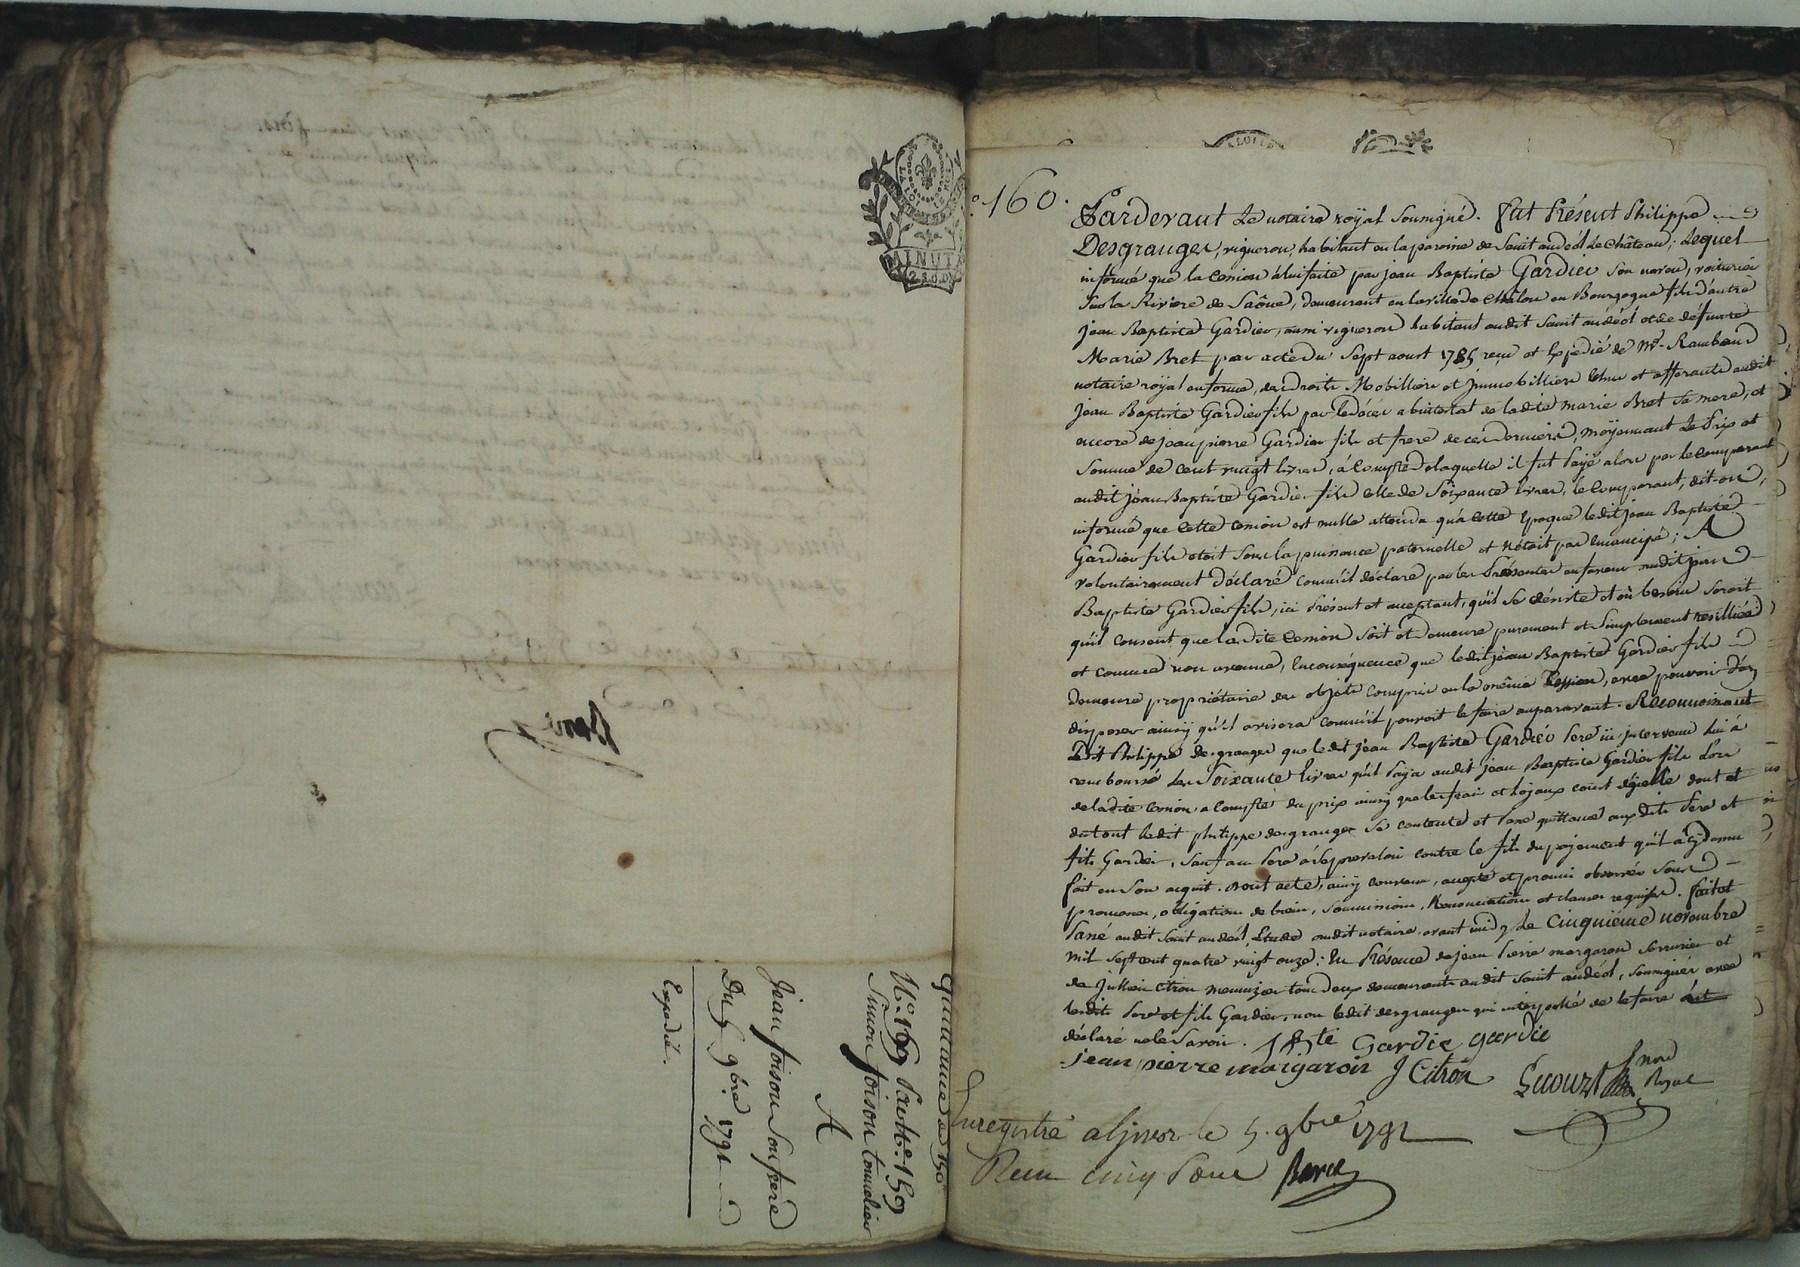 LA LOI LE ROI
MINUTE
2.s.6.d
Quittance de 150
N.º 169 Partt.e 159
Simon foison tonnelier
A
Jean foison Son frere
Du 5 9bre 1791
Expedié.
160.
Pardevant Le notaire roÿal Soussigné. Fut Présent Philippe
Desgranges, vigneron, habitant en la paroisse de Saint andéol le Château; Lequel
informé que la Cession à lui faite par jean Baptiste Gardier son neveu, voiturier
Sur la Riviere de Saône, demeurant en la ville de Châlon en Bourgogne fils d'autre
jean Baptiste Gardier, aussi vigneron habitant audit Saint andéol et de défunte
Marie Bret par acte du Sept aoust 1785 reçu et Expedié de Me. Rambaud
notaire roÿal en forme, des droits Mobilliers et jmmobilliers échus et afferants audit
jean Baptiste Gardier fils par le décès abintestat de ladite marie Bret Sa mere, et
encore de jean pierre Gardier fils et frere de ces derniers, moÿennant Le Prix et
Somme de cent vingt livres, à Compte de laquelle il fut Paÿé alors par le Comparant
audit jean Baptiste Gardier fils celle de Soixante livres, le Comparant, dit-on,
informé que Cette Cession est nulle attendu qu'à Cette Epoque ledit jean Baptiste
Gardier fils etoit Sous la puissance paternelle et n'étoit pas émancipé; A
volontairement déclaré comm'il déclare par les Présentes en faveur audit jean
Baptiste Gardier fils, ici Présent et acceptant, qu'il Se désiste et où besoin Seroit
qu'il consent que ladite Cession Soit et demeure purement et Simplement resilliée
et comme non avenue, En conséquence que ledit jean Baptiste Gardier fils
demeure propriétaire des objets compris en la même Cession, avec pouvoir d'en
disposer ainsy qu'il avisera comm'il pouvoit le faire auparavant. Reconnoissant
Ledit Philippe desgranges que ledit jean Baptiste Gardier Pere ici jntervenu lui à
remboursé Les Soixante livres qu'il Paÿa audit jean Baptiste Gardier fils Lors
de ladite Cession a Compte du prix ainsy que les frais et Loÿaux couts d'ycelle dont et
du tout ledit philippe desgranges Se contente et Passe quittance auxdits Pere et
fils Gardier, Sauf au Pere à Se prevaloir contre le fils du paÿement qu'il à cy dessus
fait en Son acquit. Dont acte, ainsy convenu, accepté et promis observer Sous
promesses, obligations de biens, Soumissions, Renonciations et clauses requises. Fait et
Passé audit Saint andéol, Etude dudit notaire avant midy Le Cinquième novembre
mil Sept cent quatre vingt onze; En Présence de jean Pierre margaron Serrurier et
de jullien Citron menuizier tous deux demeurants audit Saint andéol, Soussignés avec
lesdits Pere et fils Gardier, non ledit desgranges qui interpellé de le faire
déclaré ne le Savoir. J Bte Gardie gardie
jean pierre margaron J Citron
Royal
Enregistré a Givors le 5. 9bre 1791
Reçu cinq Sous